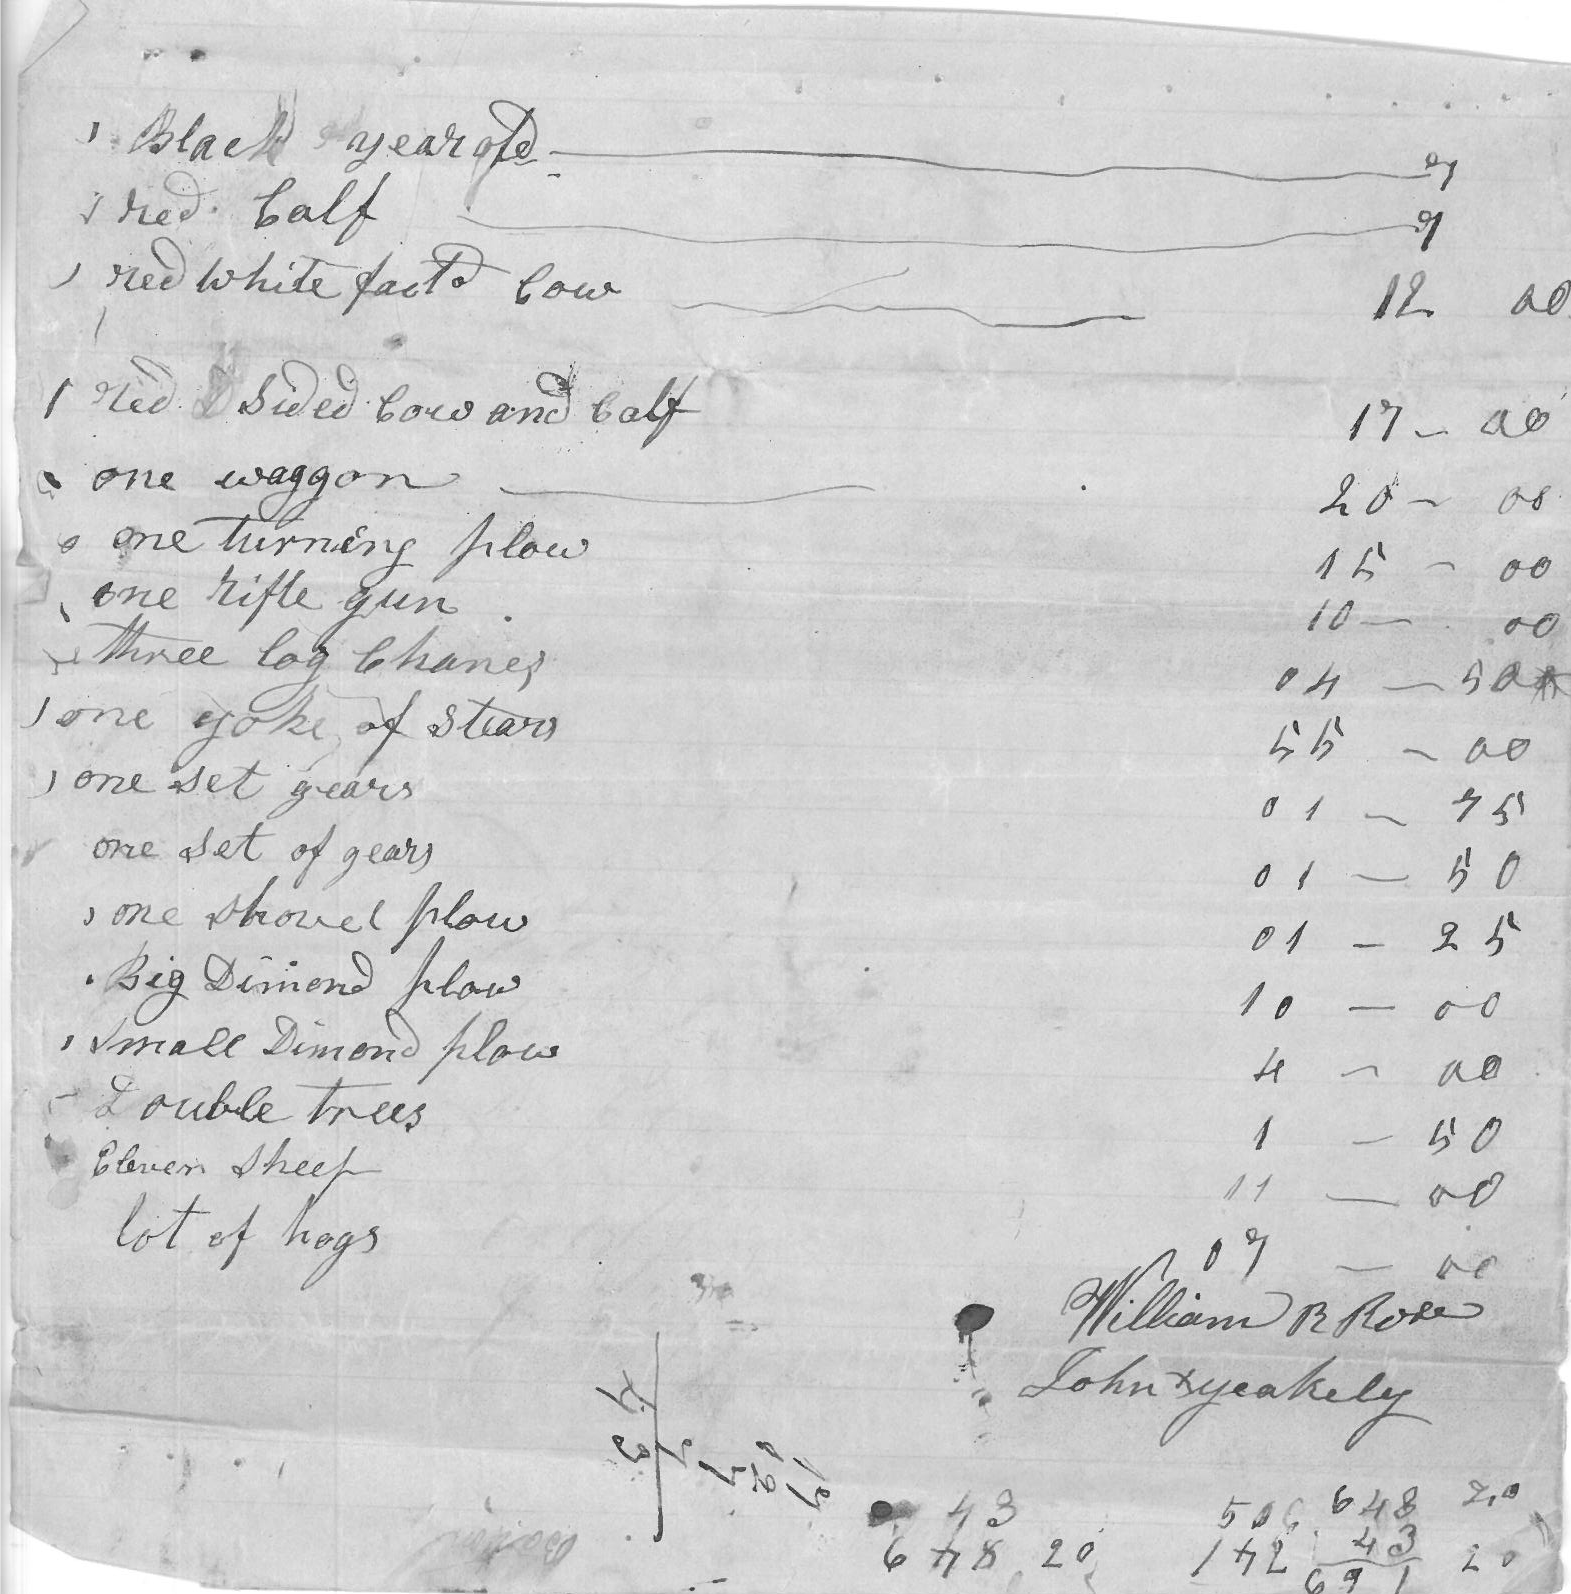 1 Black year old 7
1 red Calf 7
1 red white fact Cow 12 00
1 red Sided Cow and Calf 17 - 00
one waggon 20 - 00
one turning plow 15 - 00
one rifle gun 10 - 00
three log Chanes 04 - 50
1 one yoke of Stears 55 - 00
1 one set gears 01 - 75
one set of gears 01 - 50
one shovel plow 01 - 25
Big Dimond plow 10 - 00
1 Small Dimond plow 4 - 00
Double trees 1 - 50
Eleven Sheep 11 - 00
lot of hogs 07 - 00
William R Rose
John x yeakely
43 648 20
648 20 142 43 20
691